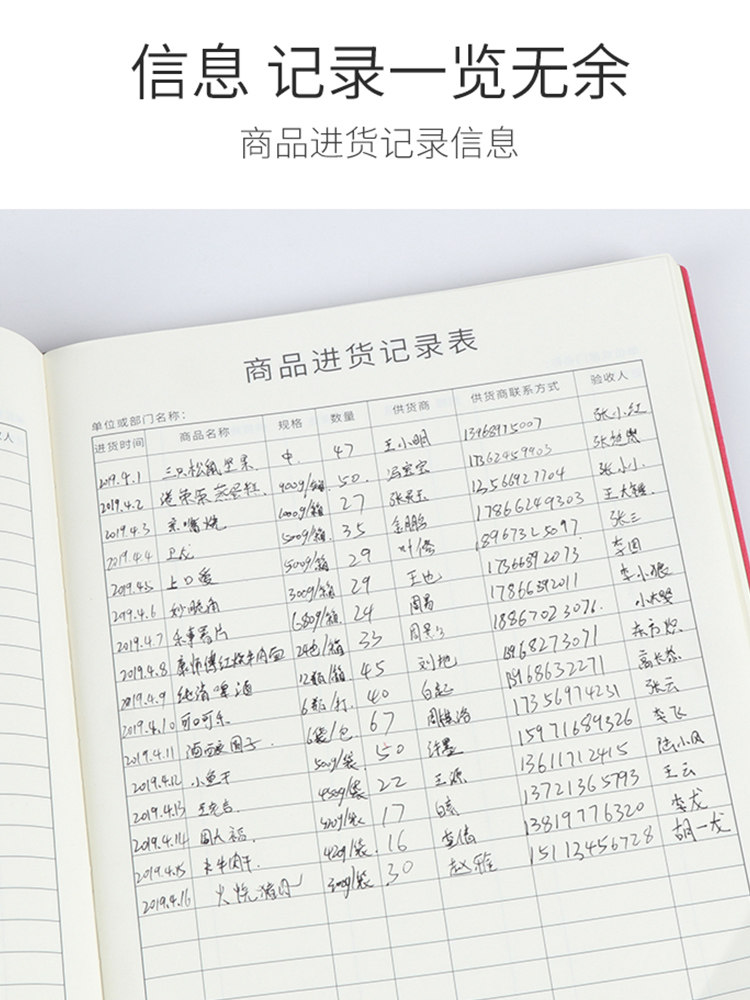 信息 记录一览无余
商品进货记录信息
商品进货记录表
单位或部门名称：
进货时间 商品名称 规格 数量 供货商 供货商联系方式 验收人
2019.4.1 三只松鼠坚果 中. 47 王小明 13968975007 张小红
2019.4.2 400g/箱 50. 冯宝宝 17362459903
2019.4.3 1000g/箱 27 13566927704 张小小.
2019.4.4 卫龙 500g/箱 35 金鹏 17866249303 王大锤.
2019.4.5 上口爱 500g/箱 29 叶修 18967325097 张三
2019.4.6 妙脆角 300g/箱 29 王也 17366392073 李四
2019.4.7 乐事薯片 24 周易 17866392011 李小狼
2019.4.8 康师傅红烧牛肉面 24包/箱 33 18867023076.
2019.4.9 纯消啤酒 12瓶/箱 45 刘 13968273071 东方
2019.4.10 可口可乐 6瓶/打 40 白起 13968632271
2019.4.11 6袋/包 67 17356974231 张云
2019.4.12 小鱼干 500g/袋 50 许墨 15971689326 李飞
2019.4.13 450g/袋 22 王源 13611712415 陆小凤
2019.4.14 周大福 17 13721365793 王云
2019.4.15 牛肉干. 420g/袋 16 李信 13819776320 李龙
2019.4.16 火烧猪肉 30 赵雅 15113456728 胡一龙
人